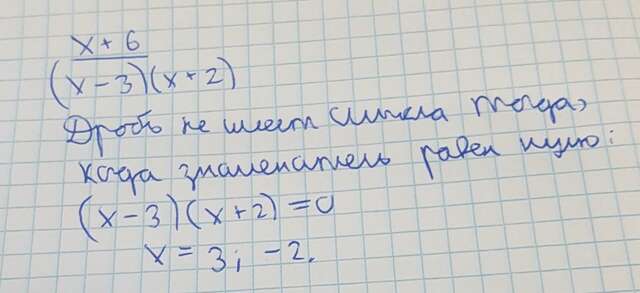 x + 6
(x - 3)(x + 2)
Дробь не имеет смысла тогда,
когда знаменатель равен нулю:
(x - 3)(x + 2) = 0
x = 3; -2.